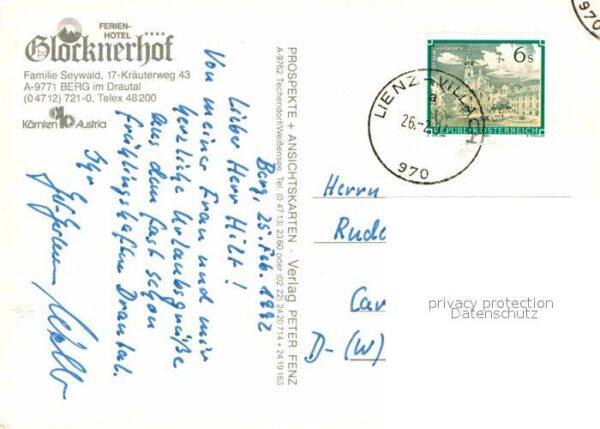 FERIEN-
HOTEL ****
Glocknerhof
Familie Seywald, 17-Kräuterweg 43
A-9771 BERG im Drautal
(0 47 12) 721-0, Telex 48 200
Kärnten Austria
Berg, 25. Feb. 1992
Lieber Herr Hilt!
Von meiner Frau und mir
herzliche Urlaubsgrüße
aus dem fast schon
frühlingshaften Drautal.
Ihr
PROSPEKTE + ANSICHTSKARTEN · Verlag PETER FENZ
A-9762 Techendorf/Weißensee, Tel. (0 47 13) 23 60 oder (02 22) 24 20 714 + 24 19 163
6 S
REPUBLIK ÖSTERREICH
LIENZ - VILLACH
a
26.-2.
970
970
Herrn
Rud
Car
D- (W)
privacy protection
Datenschutz